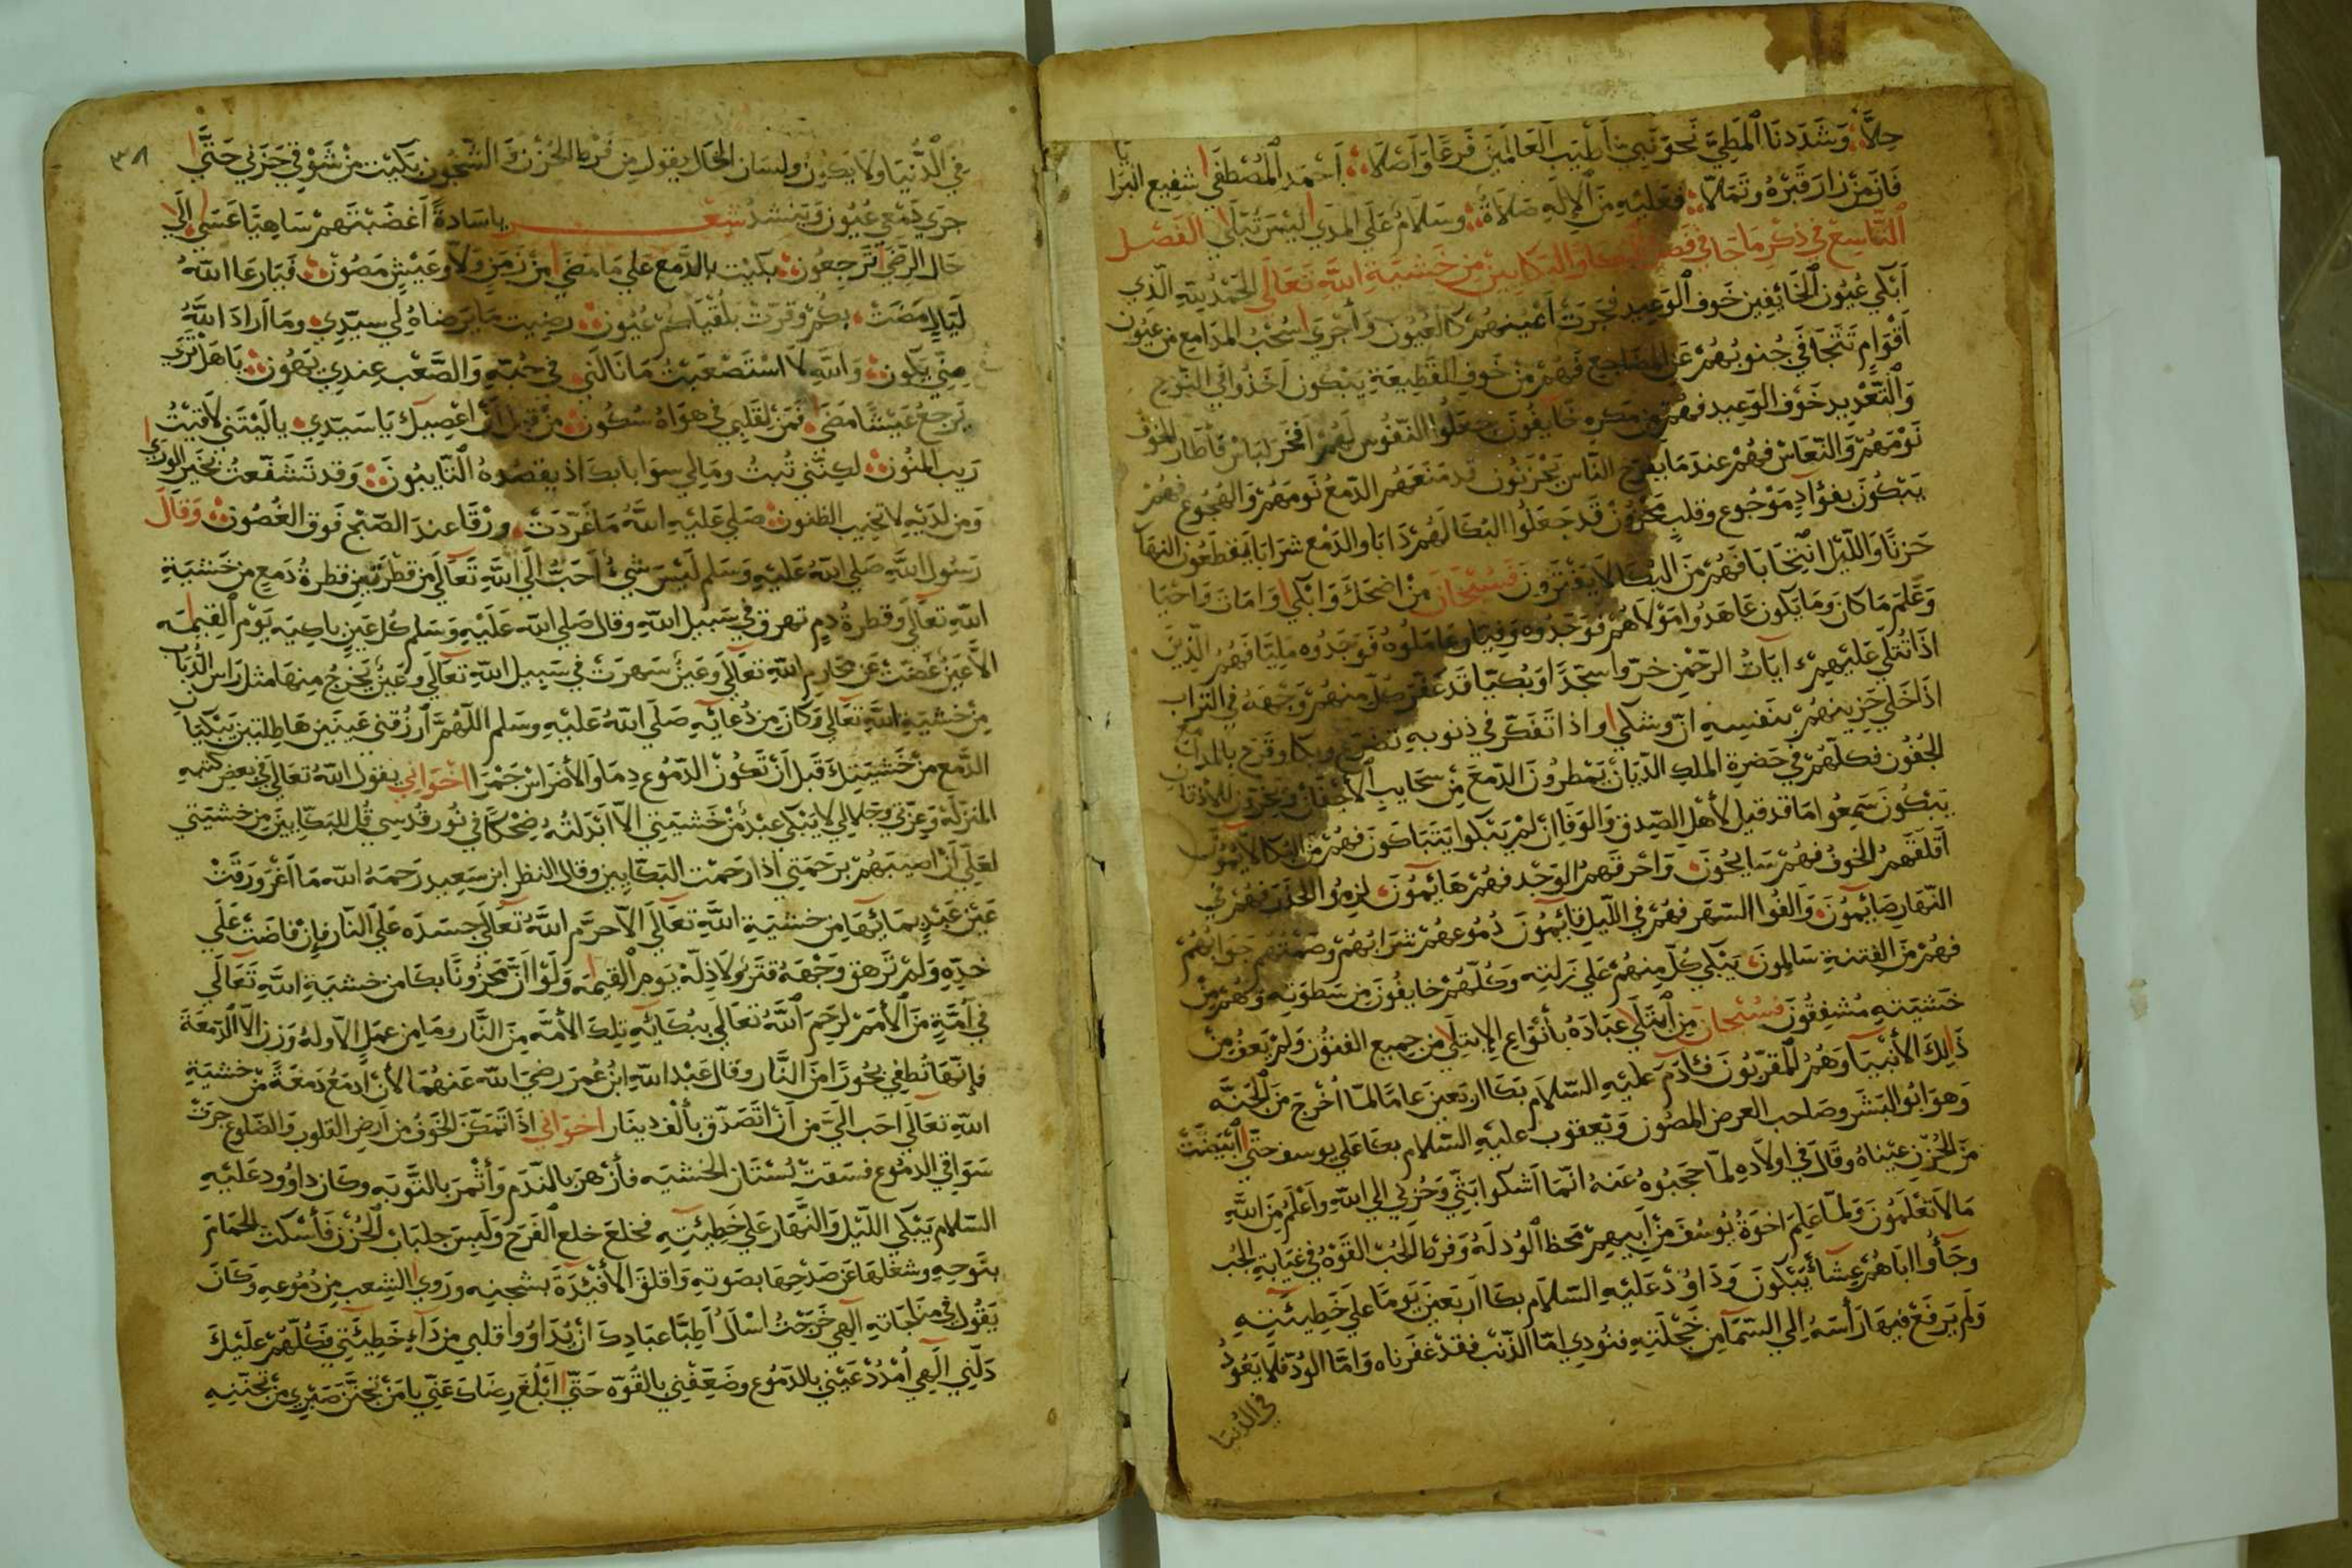 حِلاَّ وَشَدَدنَا المَطِيَّ نَحوَ نَبِيٍّ أَطْيَبِ العَالَمِينَ فَرعًا وَأَصْلا أَحْمَد المُصْطَفَي شفِيع البَرايا
فَازَ مَنْ زارَ قَبْرَهُ وتَمَلاّ فعَليْهِ مِنَ الإلَهِ صَلاَةٌ وسَلاَمٌ عَلَي المَدَي لَيْسَ تَبْلَي الفَصْل
التَّاسِع فِي ذِكْرِ مَا جَا فِي فَضل البُكا وَالبَكايِينَ مِن خَشيَةِ اللّهِ تَعَالَي الحَمْدُ للّهِ الّذِي
أَبْكَي عُيُونَ الخَائِفِينَ خَوف الوَعِيدِ فجَرَتْ أَعْيُنهُمْ كالعُيُون وَأَجْرَي سُحُبَ المدَامِع مِن عيُون
أَقْوَامٍ تَتَجَافَي جُنوبُهُمْ عَنِ المضَاجع فَهُمْ مِن خَوفِ القَطِيعَةِ يَبْكُون أَخَذُوا فِي النَّوح
وَالتَّعْدِيدِ خَوْف الوَعِيد فهُمْ مِن مَكرِهِ خَايِفُونَ جعَلُوا النّفُوس لَهُمْ أفخَر لبَاسٍ فأطَارَ الخَوفُ
نَوْمَهُمْ وَالنّعَاسَ فهُمْ عندَ مَا يَفْرَح النَّاس يَحْزَنُون قَد مَنَعَهُم الدّمعُ نَومَهُمْ وَالهُجُوع فهُمْ
يَبْكُونَ بفؤادٍ مَوْجُوعٍ وقلبٍ مَحْزُونٍ قَد جَعَلُوا البُكَا لَهُمْ دَابَا والدَّمْع شرَابَا يَقطَعُون النهَارَ
حَزنًا وَاللَّيْلَ انتِحَابَا فَهُمْ مِنَ البُكَا لاَ يَفْتَرُونَ فسُبْحَانَ مَنْ اضحَكَ وَابْكَي وَامَاتَ وَاحْيَا
وَعَلِمَ مَا كانَ ومَا يَكُون عَاهَدُوا مَوْلاَهُمْ فوَجَدُوهُ وَفِيّا وعَامَلُوهُ فَوَجَدُوه مَلِيًّا فَهُمُ الَّذِينَ
اذَا تُتْلَي عَلَيْهِمْ ايَاتُ الرّحْمنِ خرّوا سجّدًا وَبُكيّا قَد عَفّرَ كُلّ منهُمْ وَجْهَهُ فِي التُراب
اذَا خَلَي حَزِينهُمْ بنَفسِهِ انّ وشكَي واذا تَفَكّرَ فِي ذنوبِهِ تضَرّع وبكَا وقَرّح بالمَدَامِع
الجُفُون فكلّهُمْ فِي حَضرَةِ الملكِ الدّيَان يَمْطِرُونَ الدّمعَ مِن سَحَايبِ الأجْفَان وَيَخِرّونَ للأذقَانِ
يَبْكُونَ سَمِعُوا مَا قد قِيلَ لأهْلِ الصِّدقِ وَالوَفَا إنْ لَمْ يَبْكوا يَتَبَاكَونَ فهُمْ مِنَ البُكا لاَ يَمُلّونَ
أَقْلَقَهُمُ الخَوفُ فهُمْ سَايِحُونَ وَاحْرَقَهُمُ الوَجْد فهُمْ هَايِمُونَ لزِمُوا الحَذَر فهُمْ فِي
النّهَار صَايمُونَ وَالفُوا السّهَر فهُمْ فِي اللّيلِ قَايِمُونَ دُمُوعهُمْ شرَابُهُمْ وصَمْتُهُمْ جَوَابُهُمْ
فهُمْ مِنَ الفِتنةِ سَالِمُونَ يَبْكِي كُلّ مِنهُمْ عَلي زَلتِه وَكُلّهُمْ خايفُونَ مِن سَطوَتِهِ وَهُمْ مِنْ
خَشيَتِهِ مُشفِقُونَ فسُبْحَانَ مَنِ ابْتَلَي عِبَادَهُ بأنْوَاعِ الابتِلَي مِن جميع الفنُون وَلَمْ يَعْفُ مِنْ
ذَالِكَ الأنْبيَا وَهُمُ المقرّبُون فآدَم عَليْهِ السّلاَم بَكَا اربَعينَ عامَا لمّا أُخْرِجَ مِنَ الجَنَّه
وَهوَ ابُو البَشَر وصَاحب العرض المصُون وَيَعقوب عليْهِ السّلام بكَا عَلي يوسف حَتّي ابْيَضّتْ
مِنَ الحُزنِ عيْنَاهُ وقَالَ فِي اولادِهِ لمّا حَجَبُوهُ عَنهُ انّمَا اَشكُوا بَثِّي وَحُزنِي الي اللّهِ وأَعْلَمُ مِنَ اللَّهِ
مَا لاَ تَعْلَمُونَ وَلمّا عَلِمَ اخوَةُ يُوسُفَ مِنْ أَبِيهِمْ مَحْظ الوُد لَهُ وَفرطَ الحُبّ القَوْهُ فِي غيَابَةِ الجُب
وجَاُوا ابَاهُمْ عِشاءً يَبْكُونَ وَدَاوُدْ عَلَيْهِ السّلاَم بكَا اربَعينَ يَومًا علي خَطِيئَتِهِ
وَلَم يَرفَعْ فِيهَا رَأسَهُ إلي السّمَا مِن خَجْلَتِهِ فنُودِي امّا الذّنْب فقدْ غفَرنَاه وَامَّا الودّ فلاَ يَعُودُ
في الدُنيا
٣٨
فِي الدُّنيَا ولاَ يَكُون ولسَان الحَال يقول مِن فَرط الحُزْن وَالشّجُون بَكَيْت مِنْ شَوْقِي حَزَني حَتَّي
جرَي دَمْعي عُيُون وَيَنشدُ شعْر ياسَادةً أَغضَبْتَهمْ سَاهِيًا عَسَي إِلَي
حَال الرِّضَي تَرجعُون بكَيْت بالدَّمع عَلي مَا مَضَي مِنْ زَمَنٍ وَلّا وعَيْشٍ مَصُون فَيَا رَعَا اللّهُ
لَيَالٍ مَضَتْ بكُمْ وقرّتْ بلُقيَاكم عُيُون رضِيت مَا يَرضاهُ لِي سيّدِي ومَا ارادَ اللَّهُ
مِنِّي يكُون وَاللّهِ لاَ اسْتَصْعَبْتُ مَا نَالَني فِي حُبّهِ وَالصَّعْب عِندِي يَهُون يَا هَلْ تُرَي
يَرجعُ عَيْشًا مَضَي فَمَنْ لقَلبي فِي هوَاهُ سُكُون مِنْ قبل أنْ اعْصِيكَ يَا سَيّدِي يالَيْتَني لاَقيْتُ
رَيب المنُون لكِنّني تُبتُ ومَالِي سوَا بابكَ اذ يقصُدهُ التّايبُونَ وَقد تَشَفّعتُ بخَيرِ الورَي
وَمن لدَيهِ لاَ تخِيب الظنون صَلي عَليْهِ اللَّهُ مَا غَرّدَتْ ورْقَا عندَ الصّبْح فَوق الغُصُون وَقالَ
رَسُول اللّه صَلي اللّهُ عَليْهِ وَسَلم لَيْسَ شيْءٌ أحَبّ إلي اللّهِ تَعَالَي مِن قطرَتَيْنِ قطرةُ دَمعٍ مِن خَشيَةِ
اللّهِ تعَالَي وقطرةُ دمٍ تهرق فِي سَبيل اللّه وقال صَلي اللّه عَلَيْهِ وَسَلم كُل عَينٍ باكِيَه يَوْم القِيمَه
الاَّ عَينٌ غضّتْ عَن مَحَارِم اللّهِ تعَالَي وَعَينٌ سَهرَتْ فِي سَبِيل اللّهِ تعَالَي وَعَينٌ يَخرُجُ مِنهَا مثل رَاس الذّبَابِ
مِنْ خشيَةِ اللّهِ تعَالَي وَكانَ مِن دُعائِهِ صَلي اللّهُ عَليْهِ وسَلم اللّهُمَّ ارزُقنِي عَينَين هَاطِلتَين يَبْكيَا
الدَّمع مِنْ خَشْيَتِكَ قَبلَ أنْ تَكُونَ الدّمُوع دِمَا والأضرَاسَ جَمْرَا اخْوَانِي يقول اللّهُ تعَالَي فِي بعضِ كتبِهِ
المنزلَه وَعزّتِي وجلالِي لاَ يَبْكي عبْدٌ مِنْ خَشيَتِي الاّ ابْدَلتُه ضِحْكًا فِي نُور قُدسِي قُل للبَكّايينَ مِن خشيَتي
لعَلّي أنْ اصِيبَهُمْ برَحمَتِي اذَا رَحمت البَكّايِينَ وقال النظر ابن سَعِيد رَحمَهُ اللّه مَا اغرَورَقَتْ
عَينُ عَبْدٍ بمَائِهَا مِن خشيَةِ اللّهِ تعَالَي الاّ حرّم اللّهُ تعَالَي جسَدَه عَلي النّار فإن فاضَتْ عَلَي
خدّهِ وَلَمْ تَرهق وَجْهَهُ قتَرٌ ولاَ ذِلّة يَوم القِيمَه وَلَوْ أنّ مَحزونًا بكَا مِن خشيَةِ اللّهِ تَعَالَي
فِي أمّةٍ مِنَ الأُمَمِ لرَحِمَ اللّهُ تعَالَي ببُكَائِهِ تِلكَ الأمّه مِنَ النَّار ومَا مِن عمَلٍ الاّ ولهُ وَزن الاّ الدّمعَةَ
فإنّهَا تُطفِي بحُورًا مِنَ النَّار وقَالَ عَبْد اللّهِ ابنُ عُمَر رضِيَ اللّه عَنهُمَا لأنْ ادمَعُ دَمعَةً مِنْ خشيَةِ
اللّهِ تعَالَي احَبّ الَيَّ مِن أنْ اتَصَدّق بأَلْف دِينَار اخوَانِي اذَا تمَكّنَ الخَوفُ مِن ارضِ القلُوب وَالضّلوع جرَتْ
سَوَاقِي الدمُوع فسَقَتْ بُسْتَان الخشيَه فأزْهرَ بالنّدَم وَأَثْمرَ بالتّوبَه وكَان داوُود عَلَيهِ
السّلاَم يَبْكي اللّيْلَ وَالنَّهَار عَلَي خَطِيئَتِهِ فخلعَ خلع الفَرَح وَلَبسَ جلبَابَ الحُزن فَأسْكَتَ الحمَامَ
بنَوحِهِ وشغَلهَا عَن صَدْحِهَا بصَوتِهِ وَاقلقَ الأفئِدَةَ بشجنِهِ ورَوي الشِعب مِن دُمُوعِهِ وَكَانَ
يَقُولُ فِي منَاجَاتِهِ الَهِي خَرَجْتُ اسْأَلُ أطِبَّا عبَادِكَ انْ يُدَاوُوا قلبي مِن دَاءِ خَطِيئَتي فكُلّهُمْ عَلَيْكَ
دَلَّنِي الَهِي أمْدُدْ عَيْني بالدّمُوع وضَعفِي بالقُوّه حَتّي ابْلُغ رِضَاكَ عَنّي يا مَنْ